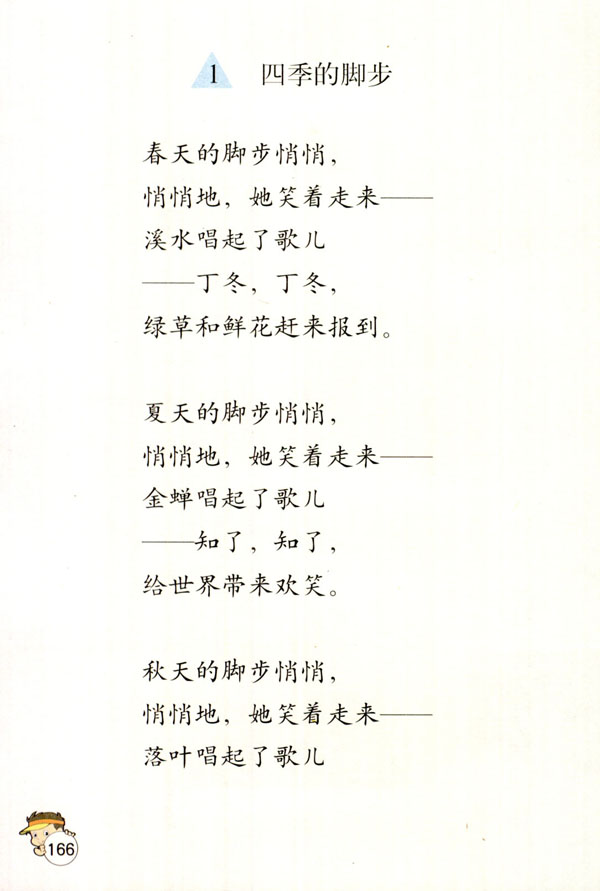 1 四季的脚步
春天的脚步悄悄，
悄悄地，她笑着走来——
溪水唱起了歌儿
——丁冬，丁冬，
绿草和鲜花赶来报到。
夏天的脚步悄悄，
悄悄地，她笑着走来——
金蝉唱起了歌儿
——知了，知了，
给世界带来欢笑。
秋天的脚步悄悄，
悄悄地，她笑着走来——
落叶唱起了歌儿
166